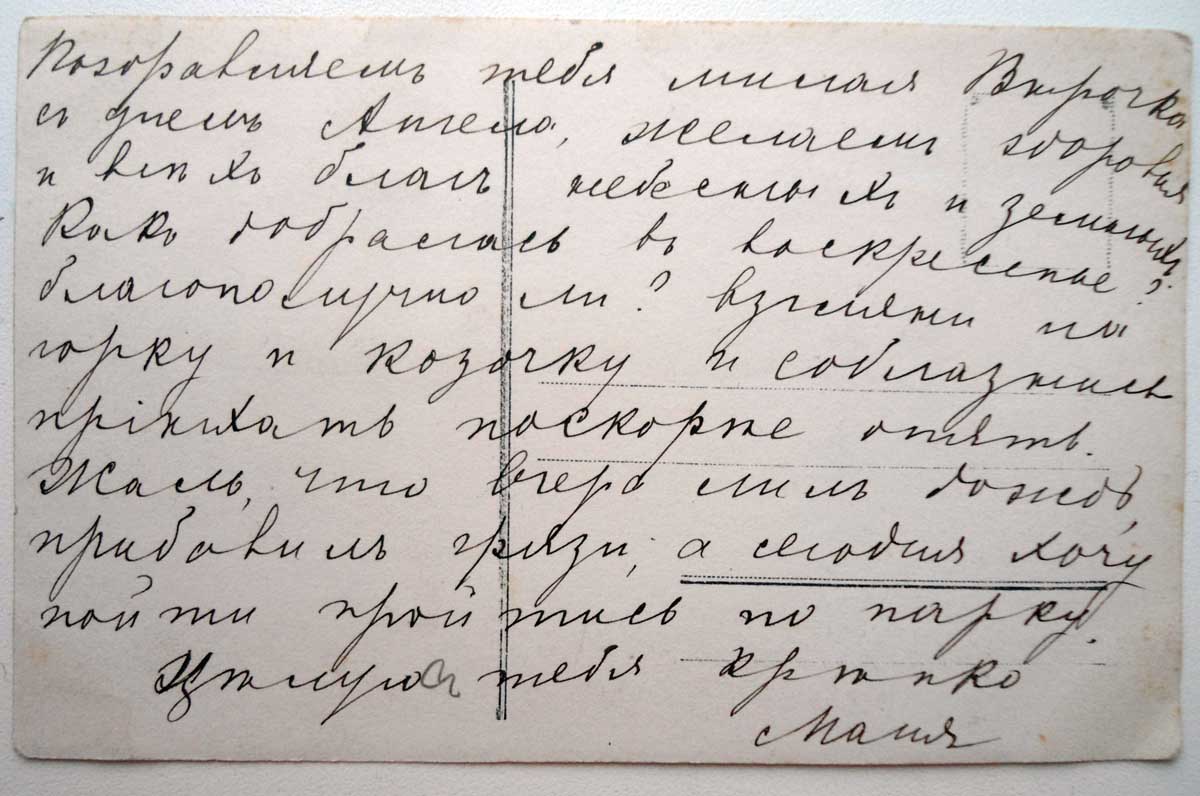 Поздравляемъ тебя милая Вѣрочка
съ днемъ Ангела, желаемъ здоровья
и всѣхъ благъ небесныхъ и земныхъ.
Какъ добралась въ воскресенье?
благополучно ли? Взгляни на
горку и козочку и соблазнись
пріѣхать поскорѣе опять.
Жаль, что вчера лилъ дождь,
прибавилъ грязи, а сегодня хочу
пойти пройтись по парку.
Цѣлую тебя крѣпко
Маня